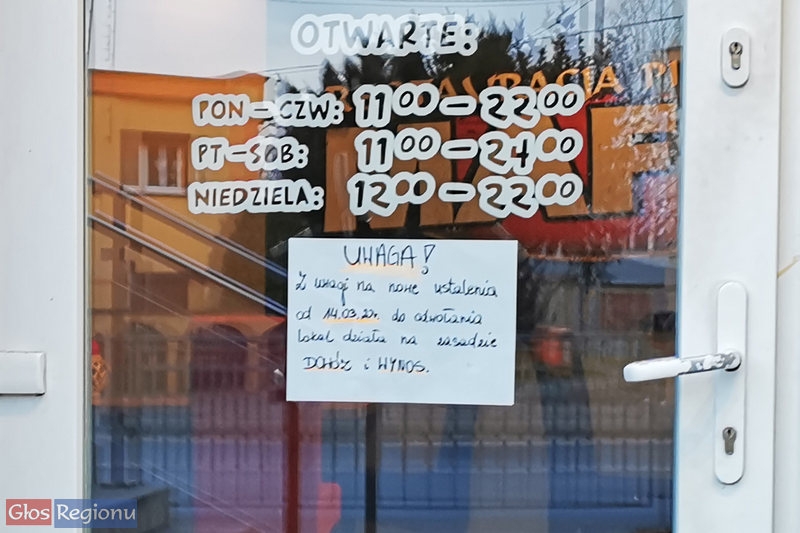 OTWARTE:
RESTAURACJA PI
PON-CZW: 11⁰⁰-22⁰⁰
PT-SOB: 11⁰⁰-24⁰⁰
NIEDZIELA: 12⁰⁰-22⁰⁰
UWAGA!
Z uwagi na nowe ustalenia
od 14.03.20r. do odwołania
lokal działa na zasadzie
DOWÓZ i WYNOS.
Głos Regionu